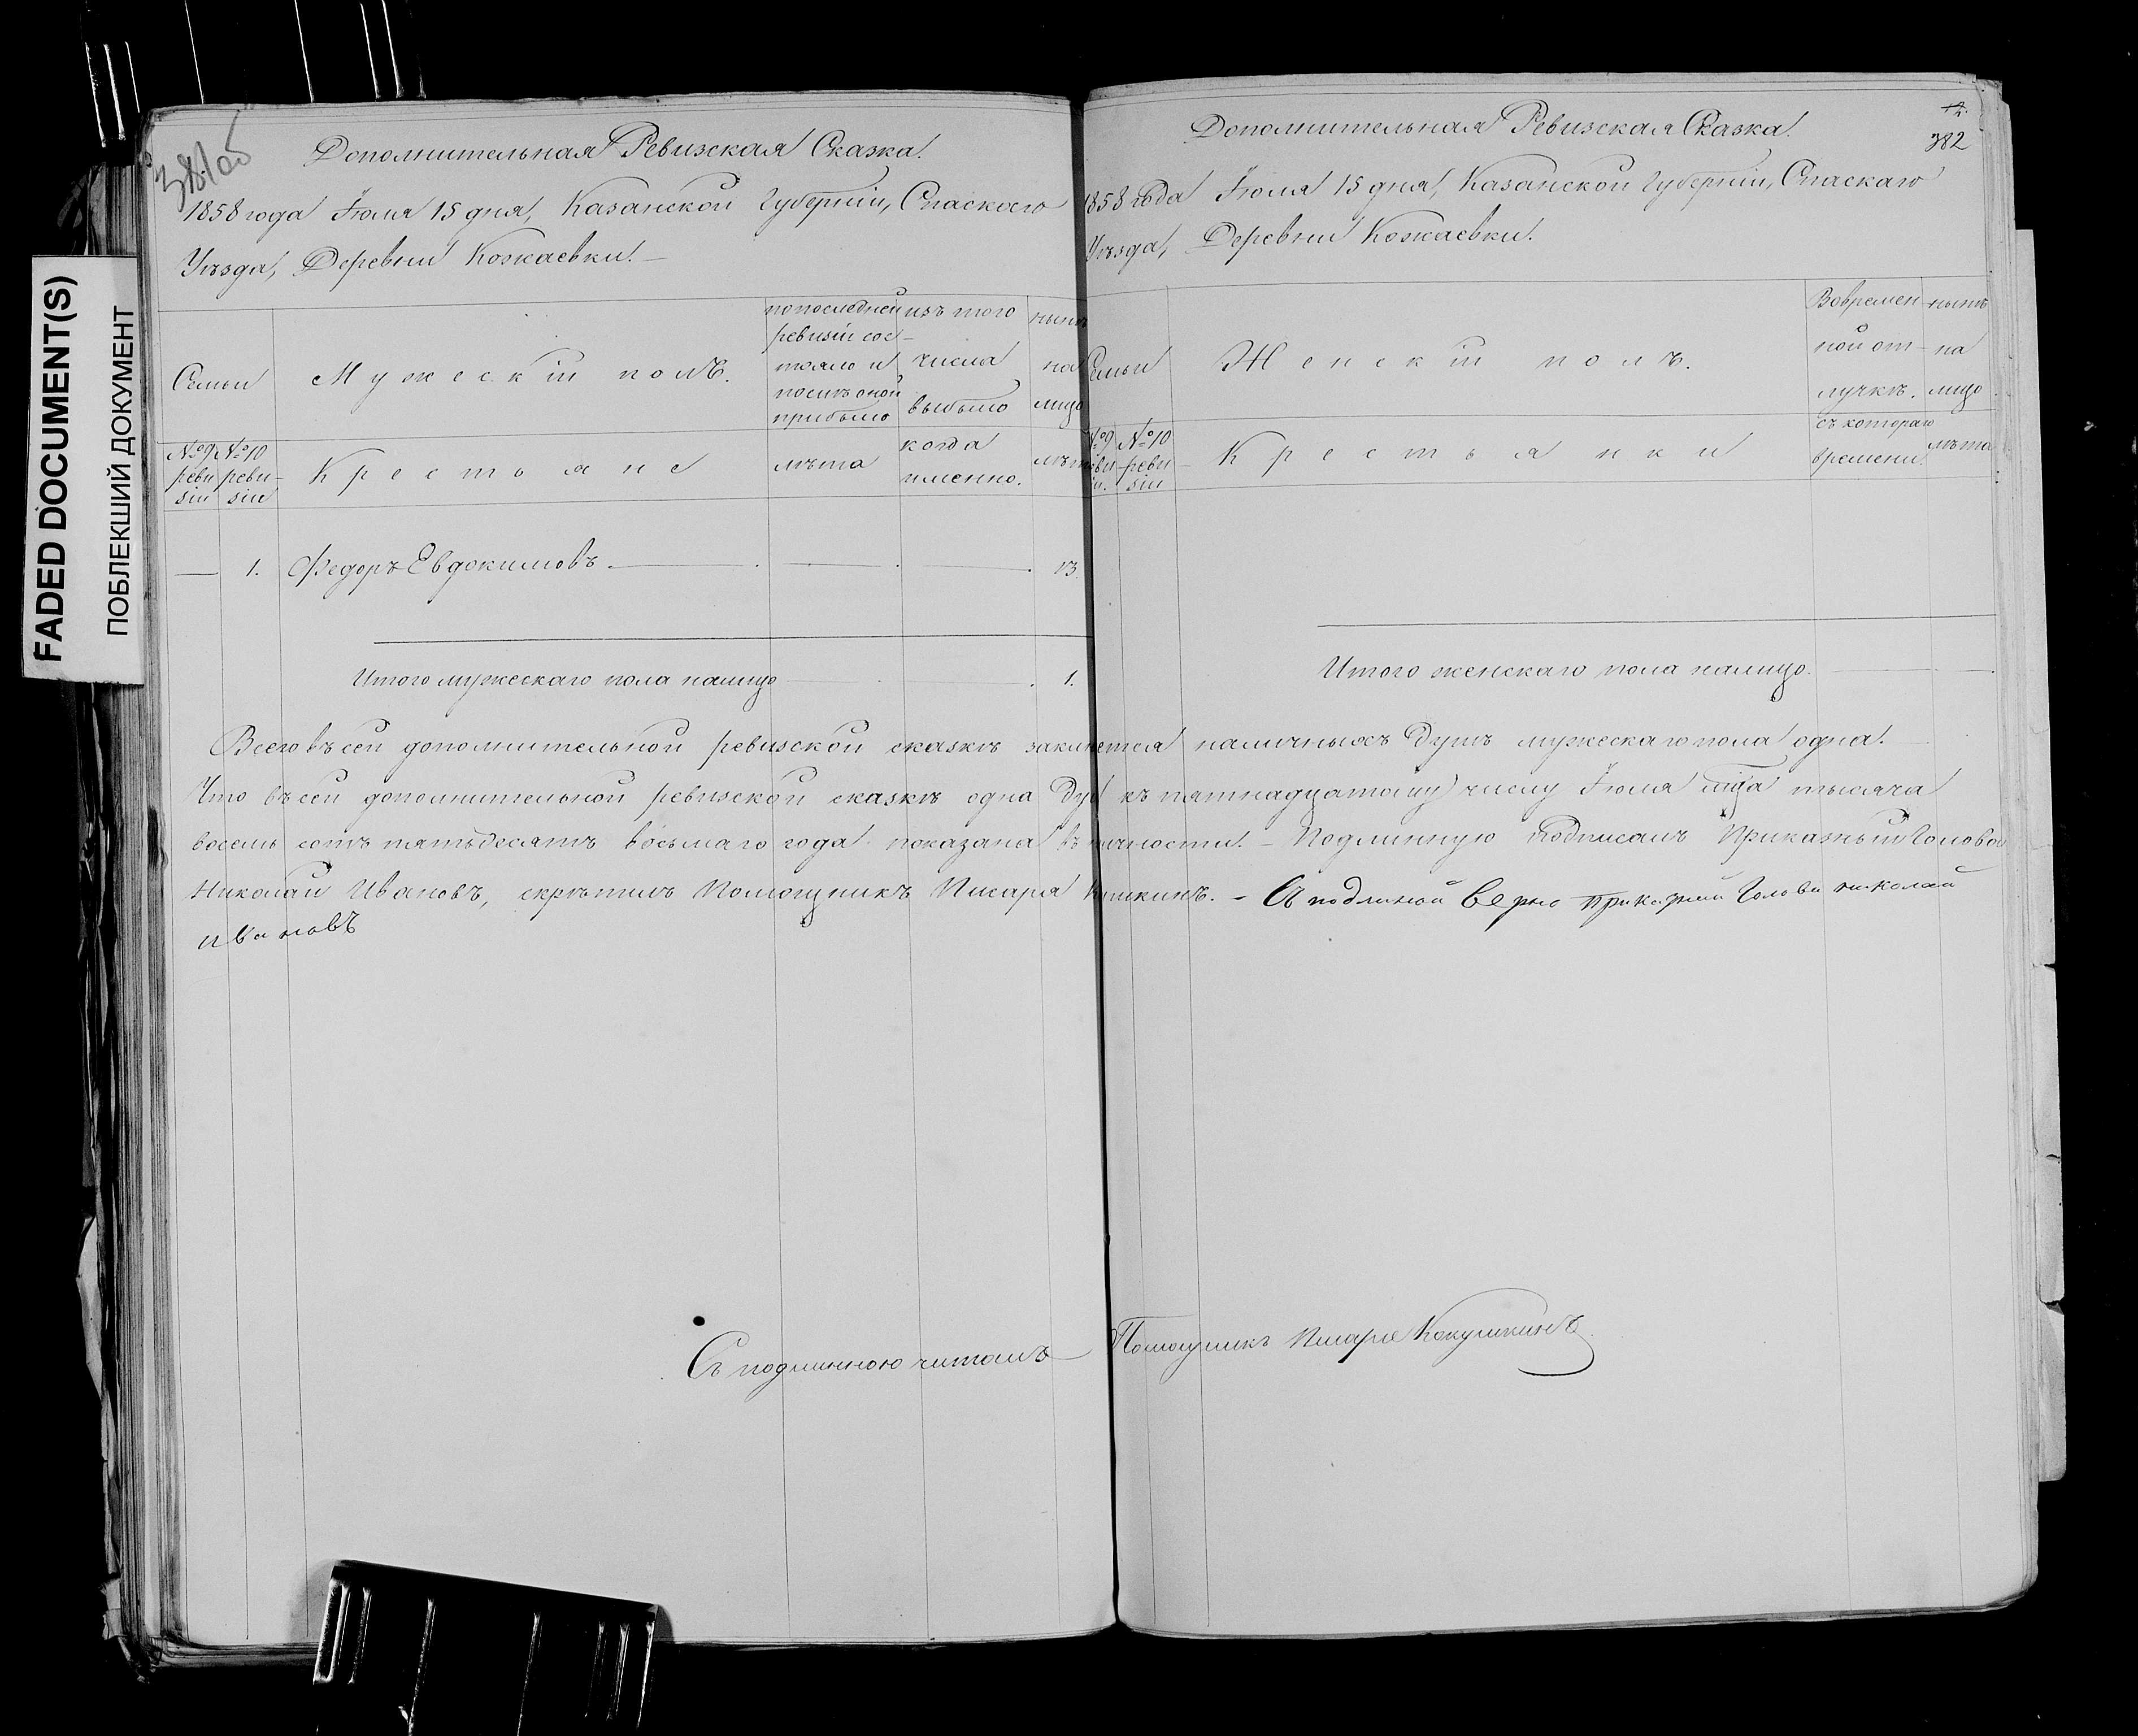 FADED DOCUMENT(S)
ПОБЛЕКШИЙ ДОКУМЕНТ
381об
Дополнительная Ревизская Сказка.
1858 года Іюля 15 дня, Казанской Губерніи, Спаскаго
Уѣзда, Деревни Кожаевки. —
Семьи
Мужескій полъ.
по последней ревизіи состояло и послѣ оной прибыло
изъ того числа выбыло
нынѣ на лицо
№ 9 ревизіи
№ 10 ревизіи
Крестьяне
лѣта
когда именно.
лѣта
— 1. Федоръ Евдокимовъ. 13.
Итого мужескаго пола налицо 1.
382
Дополнительная Ревизская Сказка.
1858 года Іюля 15 дня, Казанской Губерніи, Спаскаго
Уѣзда, Деревни Кожаевки.
Семьи
Женскій полъ.
Вовременной отлучкѣ.
нынѣ на лицо
№ 9 ревизіи.
№ 10 ревизіи
Крестьянки
съ котораго времени.
лѣта
Итого женскаго пола налицо.
Всего въ сей дополнительной ревизской сказкѣ наличныхъ душъ мужескаго пола одна.
Что въ сей дополнительной ревизской сказкѣ одна къ пятнадцатому числу Іюля мца тысяча
восемь сотъ пятьдесятъ восьмаго года показана въ . — Подлинную подписалъ Приказный Голова
Николай Ивановъ, скрѣпилъ Помощникъ Писаря . — Съ подлиной верно приказный Голова николай
ивановъ
Съ подлинною читалъ Помощникъ Писаря Кокушкинъ